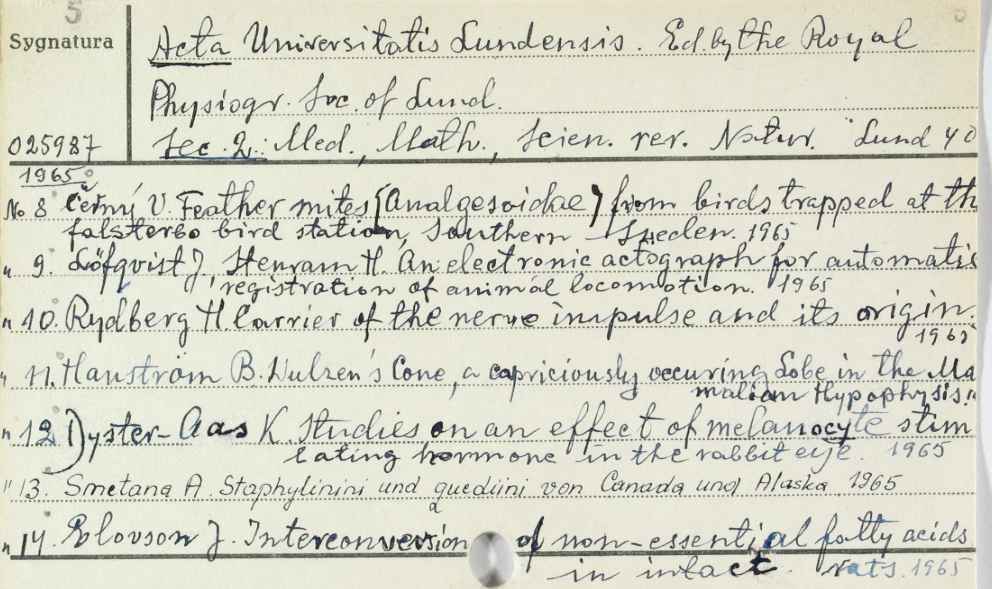 5
Sygnatura
Acta Universitatis Lundensis. Ed. by the Royal
Physiogr. Soc. of Lund.
025987
Sec. 2. Med., Math., Scien. rer. Natur. Lund 40
1965
No 8 Černý V. Feather mites (Analgesoidae) from birds trapped at th
falsterbo bird station, Southern Sweden. 1965
" 9. Löfqvist J, Stenram H. An electronic actograph for automatis
registration of animal locomotion. 1965
" 10. Rydberg H Carrier of the nerve impulse and its origin.
1965
" 11. Hanström B. Wulzen's Cone, a capriciously occuring Lobe in the Ma
malian Hypophysis."
" 12 Dyster-Aas K. Studies on an effect of melanocyte stim
lating hormone in the rabbit eye. 1965
" 13. Smetana A. Staphylinini und quediini von Canada und Alaska 1965
" 14. Elovson J. Interconversion of non-essential fatty acids
in intact rats. 1965